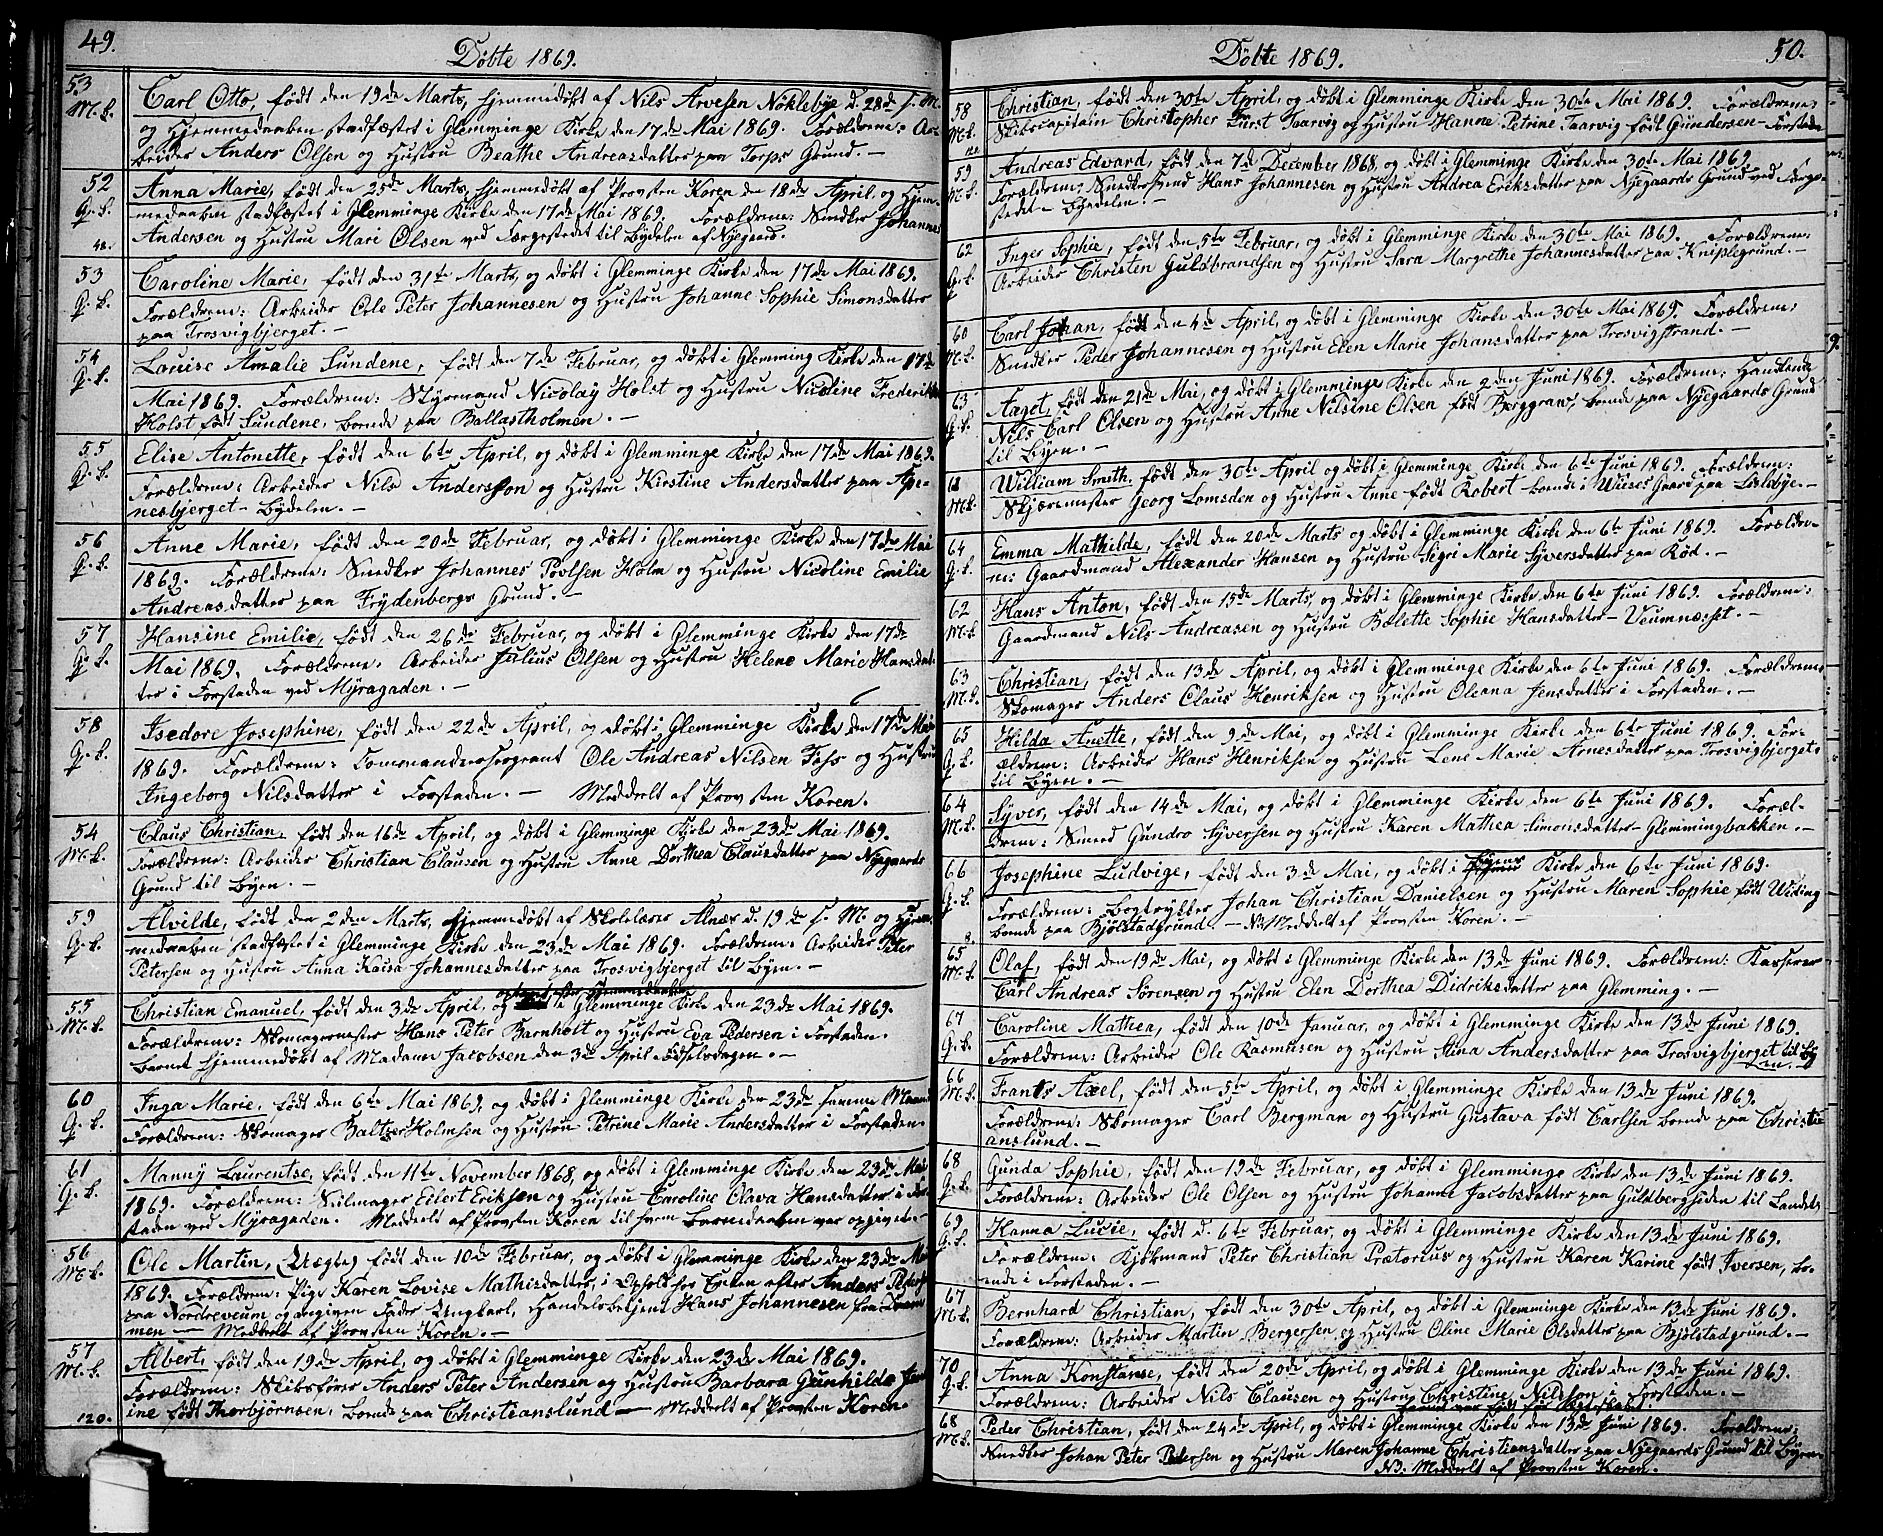 49.
Döbte 1869.
53
M. k.
Carl Otto, født den 19de Marts, hjemmedøbt af Nils Arvesen Nöklebye d. 28de s. M.
og Hjemmedaaben stadfæstet i Glemminge Kirke den 17de Mai 1869. Forældrene: Ar-
beider Anders Olsen og Hustru Beathe Andreasdatter paa Torps Grund.-
52
G. k.
48.
Anna Marie, født den 25de Marts, hjemmedøbt af Provsten Koren den 18de April, og Hjem-
medaaben stadfæstet i Glemminge Kirke den 17de Mai 1869. Forældrene: Snedker Johannes
Andersen og Hustru Mari Olsen ved Færgestedet til Bydelen af Nyegaard.
53
G. k.
Caroline Marie, født den 31te Marts, og døbt i Glemminge Kirke den 17de Mai 1869.
Forældrene: Arbeider Ole Peter Johannesen og Hustru Johanne Sophie Simonsdatter
paa Trosvigbjerget.-
54
G. k.
Louise Amalie Sundene, født den 7de Februar, og døbt i Glemming Kirke den 17de
Mai 1869. Forældrene: Styrmand Nicolay Holst og Hustru Nicoline Frederikke
Holst født Sundene, boende paa Ballastholmen.-
55
G. k.
Elise Antonette, født den 6te April, og døbt i Glemminge Kirke den 17de Mai 1869.
Forældrene: Arbeider Nils Andersson og Hustru Kirstine Andersdatter paa Ape-
nesbjerget-Bydelen.-
56
G. k.
Anne Marie, født den 20de Februar, og døbt i Glemminge Kirke den 17de Mai
1869. Forældrene: Snedker Johannes Povlsen Holm og Hustru Nicoline Emilie
Andreasdatter paa Frydenbergs Grund.-
57
G. k.
Hansine Emilie, født den 26de Februar, og døbt i Glemminge Kirke den 17de
Mai 1869. Forældrene: Arbeider Julius Olsen og Hustru Helene Marie Hansdat-
ter i Forstaden ved Myragaden.-
58
G. k.
Isedore Josephine, født den 22de April, og døbt i Glemminge Kirke den 17de Mai
1869. Forældrene: Commandersergeant Ole Andreas Nilsen Foss og Hustru
Ingeborg Nilsdatter i Forstaden.- Meddelt af Provsten Koren.
54
M. k.
Claus Christian, født den 16de April, og døbt i Glemminge Kirke den 23de Mai 1869.
Forældrene: Arbeider Christian Clausen og Hustru Anne Dorthea Clausdatter paa Nyegaards
Grund til Byen.-
59
G. k.
Alvilde, født den 2den Marts, hjemmedøbt af Skolelærer Alnæs d. 19de s. M. og Hjem-
medaaben stadfæstet i Glemminge Kirke den 23de Mai 1869. Forældrene: Arbeider Peter
Petersen og Hustru Anna Kaisa Johannesdatter paa Trosvigbjerget til Byen.-
55
M. k.
Christian Emanuel, født den 3de April, og i Glemminge Kirke den 23de Mai 1869.
Forældrene: Skomagermester Hans Peter Barnholt og Hustru Eva Pedersen i Forstaden.
Barnet hjemmedøbt af Madame Jacobsen den 3de April Fødselsdagen.-
60
G. k.
Inga Marie, født den 6te Mai 1869, og døbt i Glemminge Kirke den 23de samme Maaned
Forældrene: Skomager Baltzer Holmsen og Hustru Petrine Marie Andersdatter i Forstaden.
61
G. k.
Manny Laurentse, født den 11te November 1868, og døbt i Glemminge Kirke den 23de Mai
1869. Forældrene: Seilmager Eilert Eriksen og Hustru Caroline Olava Hansdatter i For-
staden ved Myragaden. Meddelt af Provsten Koren til hvem Barnedaaben var opgivet.
56
M. k.
Ole Martin, (Uægte) født den 10de Februar, og døbt i Glemminge Kirke den 23de Mai
1869. Forældrene: Pige Karen Lovise Mathisdatter, i Ophold hos Enken efter Anders Pedersen
paa Nordreveum og angiven Fader Ungkarl, Handelsbetjent Hans Johannesen fra Dram-
men - Meddelt af Provsten Koren.-
57
M. k.
120.
Albert, født den 19de April, og døbt i Glemminge Kirke den 23de Mai 1869.
Forældrene: Skibsfører Anders Peter Andersen og Hustru Barbara Gunhilda
ine født Thorbjørnsen, boende paa Christianslund - Meddelt af Provsten Koren.
50.
Döbte 1869.
58
M. k.
Christian, født den 30te April, og døbt i Glemminge Kirke den 30te Mai 1869. Forældrene:
Skibscapitain Christopher Furst Taarvig og Hustru Hanne Petrine Taarvig født Gundersen-Forstaden
59
M. k.
Andreas Edvard, født den 7de December 1868, og døbt i Glemminge Kirke den 30te Mai 1869.
Forældrene: Snedkersvend Hans Johannesen og Hustru Andrea Eriksdatter paa Nyegaards Grund ved Færge-
stedet-Bydelen.-
62
G. k.
Inger Sophie, født den 5te Februar, og døbt i Glemminge Kirke den 30te Mai 1869. Forældrene:
Arbeider Christen Guldbrandsen og Hustru Sara Margrethe Johannesdatter paa Kniplegrund.-
60
M. k.
Carl Johan, født den 4de April, og døbt i Glemminge Kirke den 30te Mai 1869. Forældrene:
Snedker Peder Johannesen og Hustru Elen Marie Johansdatter paa Trosvigstrand.-
63
G. k.
Aagot, født den 21de Mai, og døbt i Glemminge Kirke den 2den Juni 1869. Forældrene: Handlende
Nils Carl Olsen og Hustru Anne Nilsine Olsen født Berggraw, boende paa Nyegaards Grund
til Byen.-
61
M. k.
William Smith, født den 30te April og døbt i Glemminge Kirke den 6te Juni 1869. Forældrene:
Skjæremester Georg Lomsden og Hustru Anne født Robert-boende i Wieses Gaard paa Lislebye.-
64
G. k.
Emma Mathilde, født den 20de Marts og døbt i Glemminge Kirke den 6te Juni 1869. Forældre-
ne: Gaardmand Alexander Hansen og Hustru Segri Marie Syversdatter paa Röd.-
62
M. k.
Hans Anton, født den 15de Marts, og døbt i Glemminge Kirke den 6te Juni 1869. Forældrene:
Gaardmand Nils Andreasen og Hustru Bolette Sophie Hansdatter-Veumnæsset.-
63
M. k.
Christian, født den 13de April, og døbt i Glemminge Kirke den 6te Juni 1869. Forældrene:
Skomager Anders Claus Henriksen og Hustru Oleana Jensdatter i Forstaden.-
65
G. k.
Hilda Anette, født den 9de Mai, og døbt i Glemminge Kirke den 6te Juni 1869. For-
ældrene: Arbeider Hans Henriksen og Hustru Lene Marie Arnesdatter paa Trosvigbjerget
til Byen.-
64
M. k.
Syver, født den 14de Mai, og døbt i Glemminge Kirke den 6te Juni 1869. Foræl-
drene: Smeed Gundro Syversen og Hustru Karen Mathea Simonsdatter-Glemmingbakken.-
66
G. k.
8.
Josephine Ludvige, født den 3de Mai, og døbt i Byens Kirke den 6te Juni 1869.
Forældrene: Bogtrykker Johan Christian Danielsen og Hustru Maren Sophie født Uiding
boende paa Bjølstadgrund.- NB Meddelt af Provsten Koren.-
65
M. k.
Olaf, født den 19de Mai, og døbt i Glemminge Kirke den 13de Juni 1869. Forældrene: Kasserer
Carl Andreas Sörensen og Hustru Elen Dorthea Didriksdatter paa Glemming.-
67
G. k.
Caroline Mathea, født den 10de Januar, og døbt i Glemminge Kirke den 13de Juni 1869.
Forældrene: Arbeider Ole Rasmusen og Hustru Stina Andersdatter paa Trosvigbjerget til By
en.-
66
M. k.
Frants Axel, født den 5te April, og døbt i Glemminge Kirke den 13de Juni 1869.
Forældrene: Skomager Carl Bergman og Hustru Gustava født Carlsen boende paa Christi-
anslund.-
68
G. k.
Gunda Sophie, født den 19de Februar, og døbt i Glemminge Kirke den 13de Juni 1869.
Forældrene: Arbeider Ole Olsen og Hustru Johanne Jacobsdatter paa Guldbergsiden til Landet.
69
G. k.
Hanna Lucie, født d. 6te Februar, og døbt i Glemminge Kirke den 13de Juni 1869.
Forældrene: Kjøbmand Peter Christian Prætorius og Hustru Karen Karine født Iversen, bo-
ende i Forstaden.-
67
M. k.
Bernhard Christian, født den 30te April, og døbt i Glemminge Kirke den 13de Juni 1869.
Forældrene: Arbeider Martin Bergersen og Hustru Oline Marie Olsdatter paa Bjølstadgrund.-
70
G. k.
Anna Konstanse, født den 20de April, og døbt i Glemminge Kirke den 13de Juni 1869.
Forældrene: Arbeider Nils Clausen og Hustru Christine Nilsson i Forstaden.-
68
M. k.
Peder Christian, født den 24de April, og døbt i Glemminge Kirke den 13de Juni 1869. Forældrene:
Snedker Johan Peter Petersen og Hustru Maren Johanne Christiansdatter paa Nyegaards Grund til Byen.
NB: Meddelt af Provsten Koren.